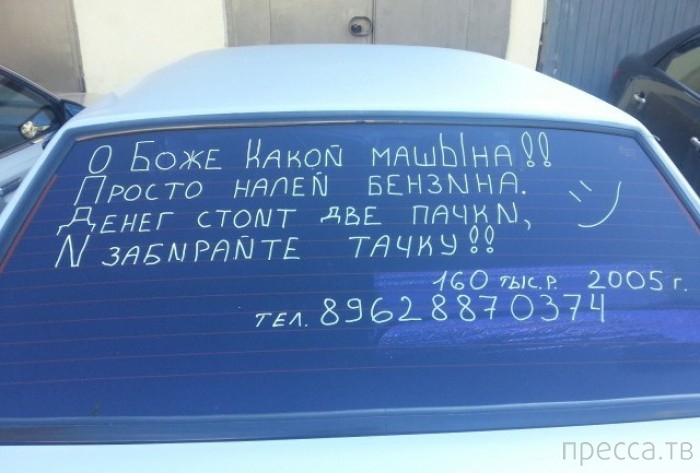 О Боже Какой машЫна!!
Просто налей бензина.
Денег стоит две пачки,
И забирайте тачку!!
160 тыс.р. 2005 г.
тел. 89628870374
пресса.тв